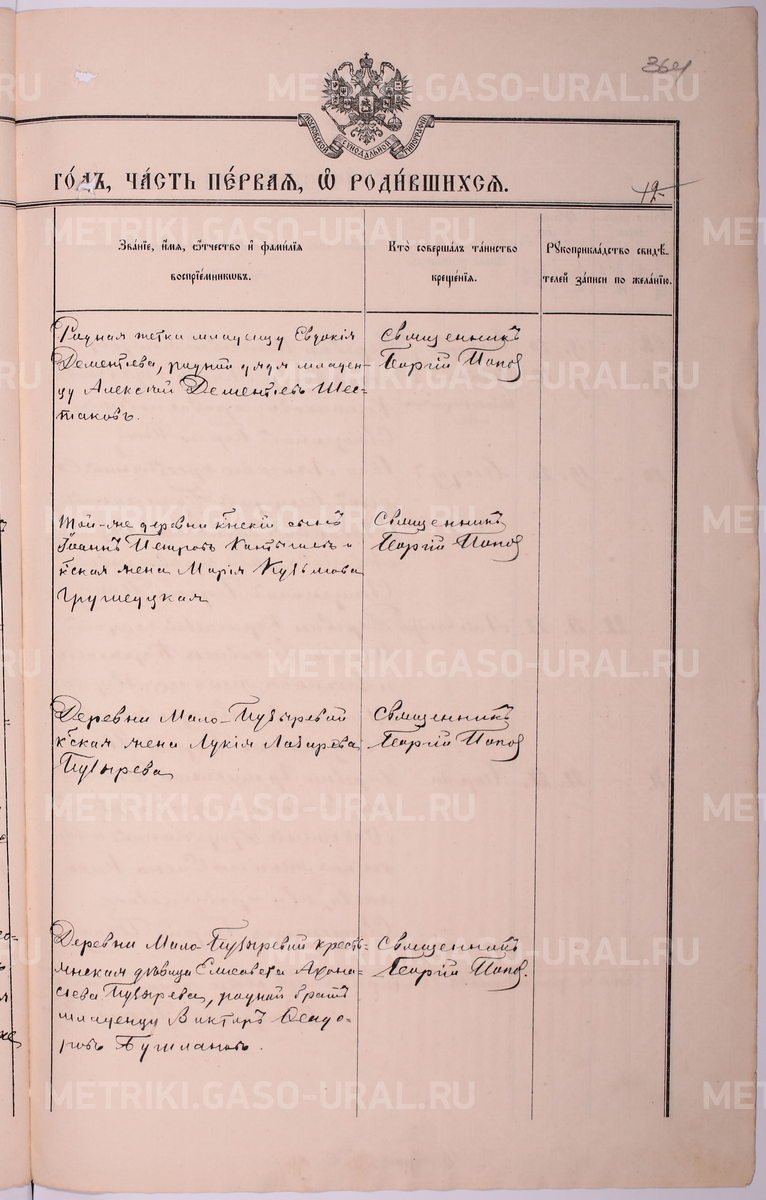 364
МОСКОВСКОЙ СѴНОДАЛЬНОЙ ТИПОГРАФІИ
ГО́ДЪ, ЧА́СТЬ ПЕ́РВАЯ, Ѡ РОДИ́ВШИХСЯ.
12
Зва́нїе, и́мя, ѻ҆́тчество и҆ фами́лїя
воспрїе́мниковъ.
Кто̀ соверша́лъ та́инство
креще́нїя.
Рꙋкоприкла́дство свидѣ́-
телей за́писи по жела́нїю.
Родная тетка младенцу Евдокія
Дементіева, родной дядя младен-
цу Алексій Дементіевъ Шес-
таковъ.
Священникъ
Георгій Попов
Той-же деревни кр-нскій сынъ
Іоаннъ Петровъ и
кр-ская жена Марія Кузьмова
Грушецкая
Священникъ
Георгій Попов
Деревни Мало-Пузыревой
кр-ская жена Лукія Лазарева
Пузырева
Священникъ
Георгій Попов
Деревни Мало-Пузыревой кресть-
янская дѣвица Елисавета Афона-
сіева Пузырева, родной братъ
младенцу Викторъ Ѳеодо-
ровъ
Священникъ
Георгій Попов.
METRIKI.GASO-URAL.RU